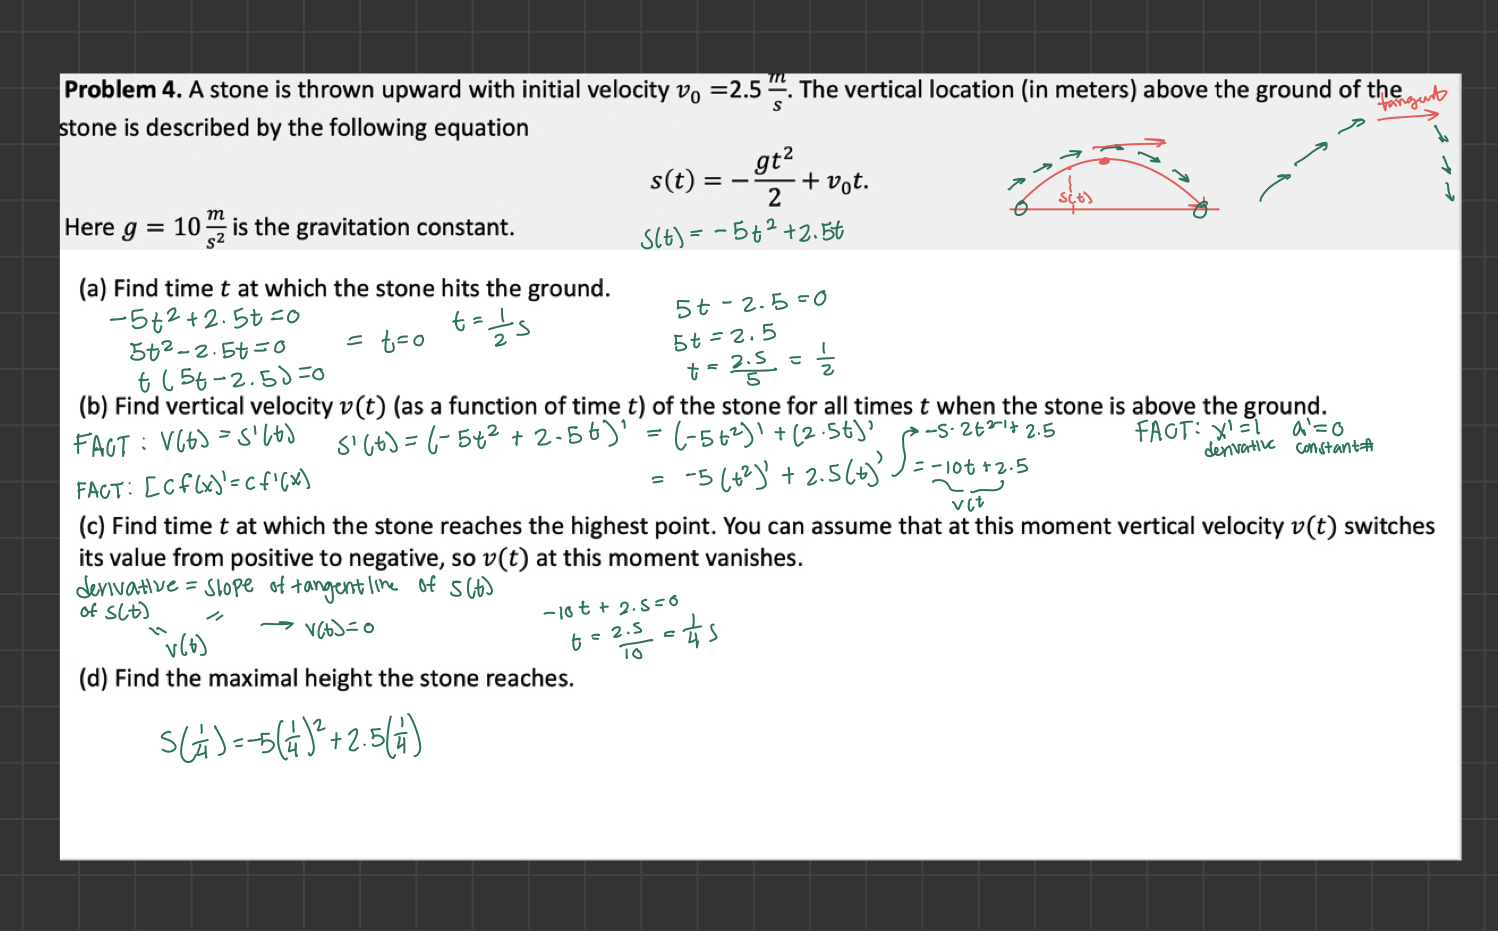 Problem 4. A stone is thrown upward with initial velocity v₀ =2.5 m/s. The vertical location (in meters) above the ground of the
tangent
stone is described by the following equation
s(t) = −gt²/2 + v₀t.
s(t)
Here g = 10 m/s² is the gravitation constant.
S(t) = -5t² +2.5t
(a) Find time t at which the stone hits the ground.
-5t²+2.5t=0
5t²-2.5t=0
t(5t-2.5)=0
= t=0 t=1/2 s
5t - 2.5 =0
5t = 2.5
t = 2.5/5 = 1/2
(b) Find vertical velocity v(t) (as a function of time t) of the stone for all times t when the stone is above the ground.
FACT: V(t) = S'(t) S'(t) = (-5t² + 2.5t)' = (-5t²)' + (2.5t)'
= -5(t²)' + 2.5(t)'
-5·2t²⁻¹+ 2.5
= -10t +2.5
v(t
FACT: x'=1 a'=0
derivative constant #
FACT: [cf(x)]'=cf'(x)
(c) Find time t at which the stone reaches the highest point. You can assume that at this moment vertical velocity v(t) switches
its value from positive to negative, so v(t) at this moment vanishes.
derivative = slope of tangent line of S(t)
of S(t)
"
v(t)
"
→ v(t)=0
-10t + 2.5=0
t = 2.5/10 = 1/4 s
(d) Find the maximal height the stone reaches.
S(1/4)=-5(1/4)²+2.5(1/4)